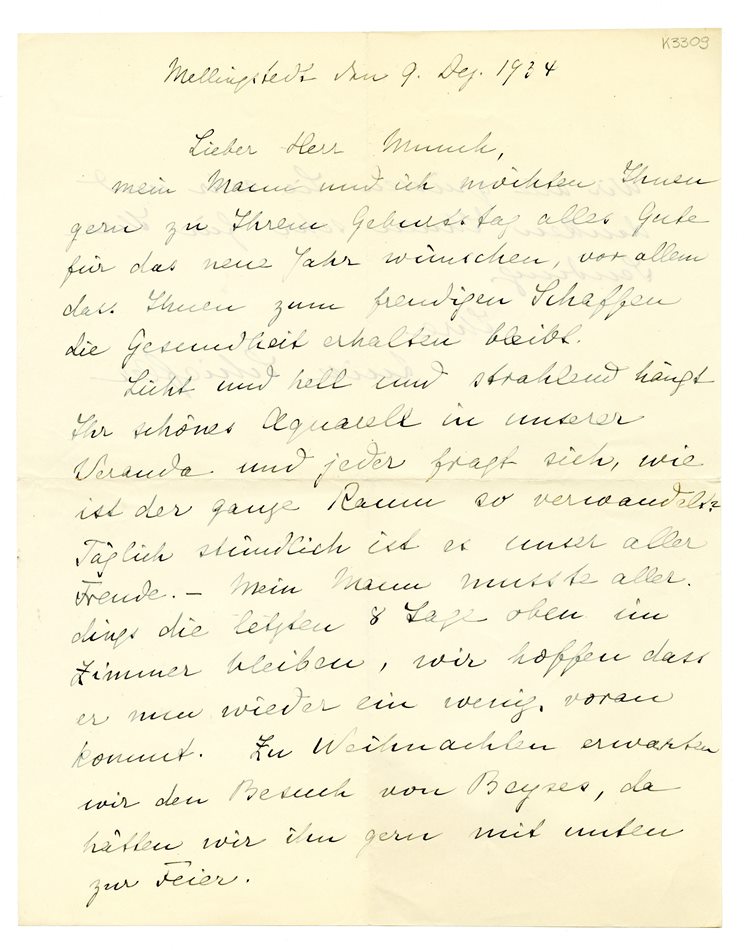 K3309
Mellingstedt den 9. Dez. 1934
Lieber Herr Munch,
mein Mann und ich möchten Ihnen
gern zu Ihrem Geburtstag alles Gute
für das neue Jahr wünschen, vor allem
dass Ihnen zum freudigen Schaffen
die Gesundheit erhalten bleibt.
Licht und hell und strahlend hängt
Ihr schönes Aquarell in unserer
Veranda und jeder fragt sich, wie
ist der ganze Raum so verwandelt?
Täglich stündlich ist es unser aller
Freude. – Mein Mann musste aller-
dings die letzten 8 Tage oben im
Zimmer bleiben, wir hoffen dass
er nun wieder ein wenig voran
kommt. Zu Weihnachten erwarten
wir den Besuch von Beyses, da
hätten wir ihn gern mit unten
zur Feier.